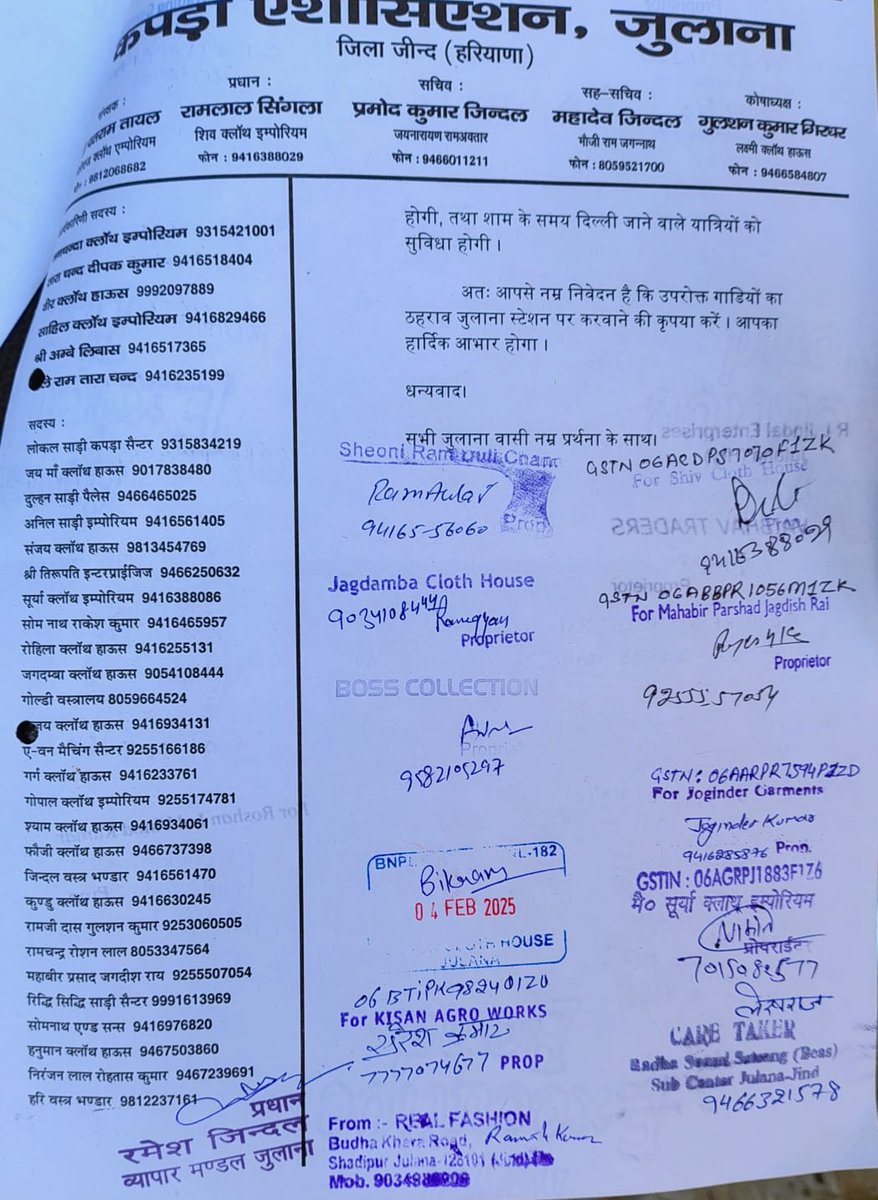 कपड़ा एशोसिएशन, जुलाना
जिला जीन्द (हरियाणा)
तायल
क्लॉथ एम्पोरियम
9812068682
प्रधान :
रामलाल सिंगला
शिव क्लॉथ इम्पोरियम
फोन : 9416388029
सचिव :
प्रमोद कुमार जिन्दल
जयनारायण रामअवतार
फोन : 9466011211
सह-सचिव :
महादेव जिन्दल
मौजी राम जगन्नाथ
फोन : 8059521700
कोषाध्यक्ष :
गुलशन कुमार गिरधर
लक्ष्मी क्लॉथ हाऊस
फोन : 9466584807
सदस्य :
क्लॉथ इम्पोरियम 9315421001
चन्द दीपक कुमार 9416518404
क्लॉथ हाऊस 9992097889
साहिल क्लॉथ इम्पोरियम 9416829466
श्री अम्बे लिबास 9416517365
राम तारा चन्द 9416235199
सदस्य :
लोकल साड़ी कपड़ा सैन्टर 9315834219
जय माँ क्लॉथ हाऊस 9017838480
दुल्हन साड़ी पैलेस 9466465025
अनिल साड़ी इम्पोरियम 9416561405
संजय क्लॉथ हाऊस 9813454769
श्री तिरूपति इन्टरप्राईजिज 9466250632
सूर्या क्लॉथ इम्पोरियम 9416388086
सोम नाथ राकेश कुमार 9416465957
रोहिला क्लॉथ हाऊस 9416255131
जगदम्बा क्लॉथ हाऊस 9054108444
गोल्डी वस्त्रालय 8059664524
क्लॉथ हाऊस 9416934131
ए-वन मैचिंग सैन्टर 9255166186
गर्ग क्लॉथ हाऊस 9416233761
गोपाल क्लॉथ इम्पोरियम 9255174781
श्याम क्लॉथ हाऊस 9416934061
फौजी क्लॉथ हाऊस 9466737398
जिन्दल वस्त्र भण्डार 9416561470
कुण्डु क्लॉथ हाऊस 9416630245
रामजी दास गुलशन कुमार 9253060505
रामचन्द्र रोशन लाल 8053347564
महाबीर प्रसाद जगदीश राय 9255507054
रिद्धि सिद्धि साड़ी सैन्टर 9991613969
सोमनाथ एण्ड सन्स 9416976820
हनुमान क्लॉथ हाऊस 9467503860
निरंजन लाल रोहतास कुमार 9467239691
हरि वस्त्र भण्डार 9812237161
प्रधान
रमेश जिन्दल
व्यापार मण्डल जुलाना
होगी, तथा शाम के समय दिल्ली जाने वाले यात्रियों को
सुविधा होगी ।
अतः आपसे नम्र निवेदन है कि उपरोक्त गाडियों का
ठहराव जुलाना स्टेशन पर करवाने की कृपया करें । आपका
हार्दिक आभार होगा ।
धन्यवाद।
सभी जुलाना वासी नम्र प्रर्थना के साथ।
Sheoni Ram Duli Chand
RamAutar
94165-56060
Prop.
Jagdamba Cloth House
Ramgyan
Proprietor
BOSS COLLECTION
9582105297
BNPL
L-182
Bikram
04 FEB 2025
CLOTH HOUSE
JULANA
06BTIPK9824D1Z0
For KISAN AGRO WORKS
सुरेश कुमार
7777074677 PROP
From :- REAL FASHION
Budha Khera Road, Ramesh Kumar
Shadipur Julana-126101 (Jind)
Mob. 9034
GSTN 06ACDPS7070F1ZK
For Shiv Cloth House
Prop.
9416388029
GSTN 06ABBPR1056M1ZK
For Mahabir Parshad Jagdish Rai
Proprietor
GSTN: 06AARPR7594P1ZD
For Joginder Garments
Joginder Kumar
9416285876 Prop.
GSTIN : 06AGRPJ1883F1Z6
मै० सूर्या क्लाथ इम्पोरियम
प्रोपराईटर
लेखराज
CARE TAKER
Radha Soami Satsang (Beas)
Sub Center Julana-Jind
9466321578